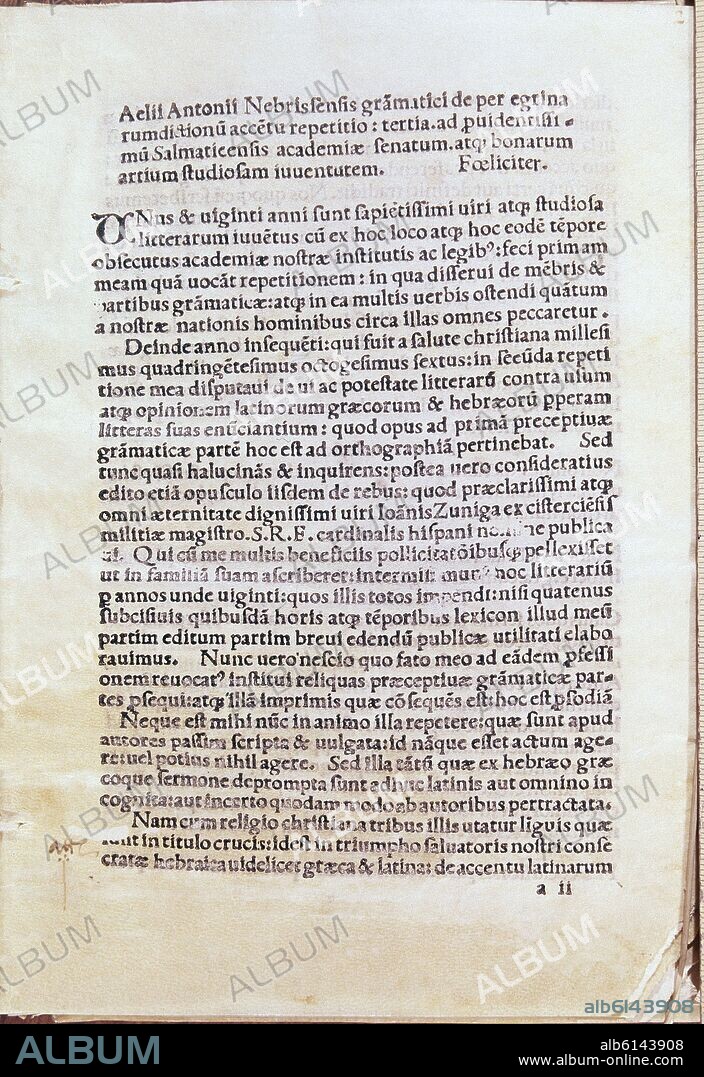 Aelii Antonii Nebrissensis grāmatici de per egrina
rumdictionū accētu repetitio : tertia.ad ꝓuidentissi
mū Salmaticensis academiæ senatum.atq; bonarum
artium studiosam iuuentutem. Fœliciter.
VNus & uiginti anni sunt sapiētissimi uiri atq; studiosa
litterarum iuuētus cū ex hoc loco atq; hoc eodē tēpore
obsecutus academiæ nostræ institutis ac legibꝰ:feci primam
meam quā uocāt repetitionem : in qua disserui de mēbris &
partibus grāmaticæ:atq; in ea multis uerbis ostendi quātum
a nostræ nationis hominibus circa illas omnes peccaretur.
Deinde anno insequēti:qui fuit a salute christiana millesi
mus quadringētesimus octogesimus sextus:in secūda repeti
tione mea disputaui de ui ac potestate litterarū contra usum
atq; opinionem latinorum græcorum & hebræorū ꝑperam
litteras suas enūciantium : quod opus ad primā preceptiuæ
grāmaticæ partē hoc est ad orthographiā pertinebat. Sed
tunc quasi halucinās & inquirens:postea uero consideratius
edito etiā opusculo iisdem de rebus: quod præclarissimi atq;
omni æternitate dignissimi uiri Ioānis Zuniga ex cisterciēsis
militiæ magistro.S.R.E. cardinalis hispani nomine publica
ui. Qui cū me multis beneficiis pollicitatōibusq; pellexisset
ut in familiā suam ascriberet:intermisi hoc litterariū
ꝑ annos unde uiginti:quos illis totos impendi:nisi quatenus
subcisiuis quibusdā horis atq; tēporibus lexicon illud meū
partim editum partim breui edendū publicæ utilitati elabo
rauimus. Nunc uero nescio quo fato meo ad eādem ꝓfessi
onem reuocatꝰ institui reliquas præceptiuæ grāmaticæ par-
tes ꝓsequi:atq; illā imprimis quæ cōsequēs est:hoc est ꝓsodiā
Neque est mihi nūc in animo illa repetere:quæ sunt apud
autores passim scripta & uulgata:id nāque esset actum age-
re:uel potius nihil agere. Sed illa tātū quæ ex hebræo græ
coque sermone deprompta sunt adhuc latinis aut omnino in
cognita:aut incerto quodam modo ab autoribus pertractata.
Nam cum religio christiana tribus illis utatur liguis quæ
sunt in titulo crucis:idest in triumpho saluatoris nostri conse
cratæ hebraica uidelicet græca & latina: de accentu latinarum
a ii
ALBUM
alb6143908
ALBUM
alb6143908
www.album-online.com